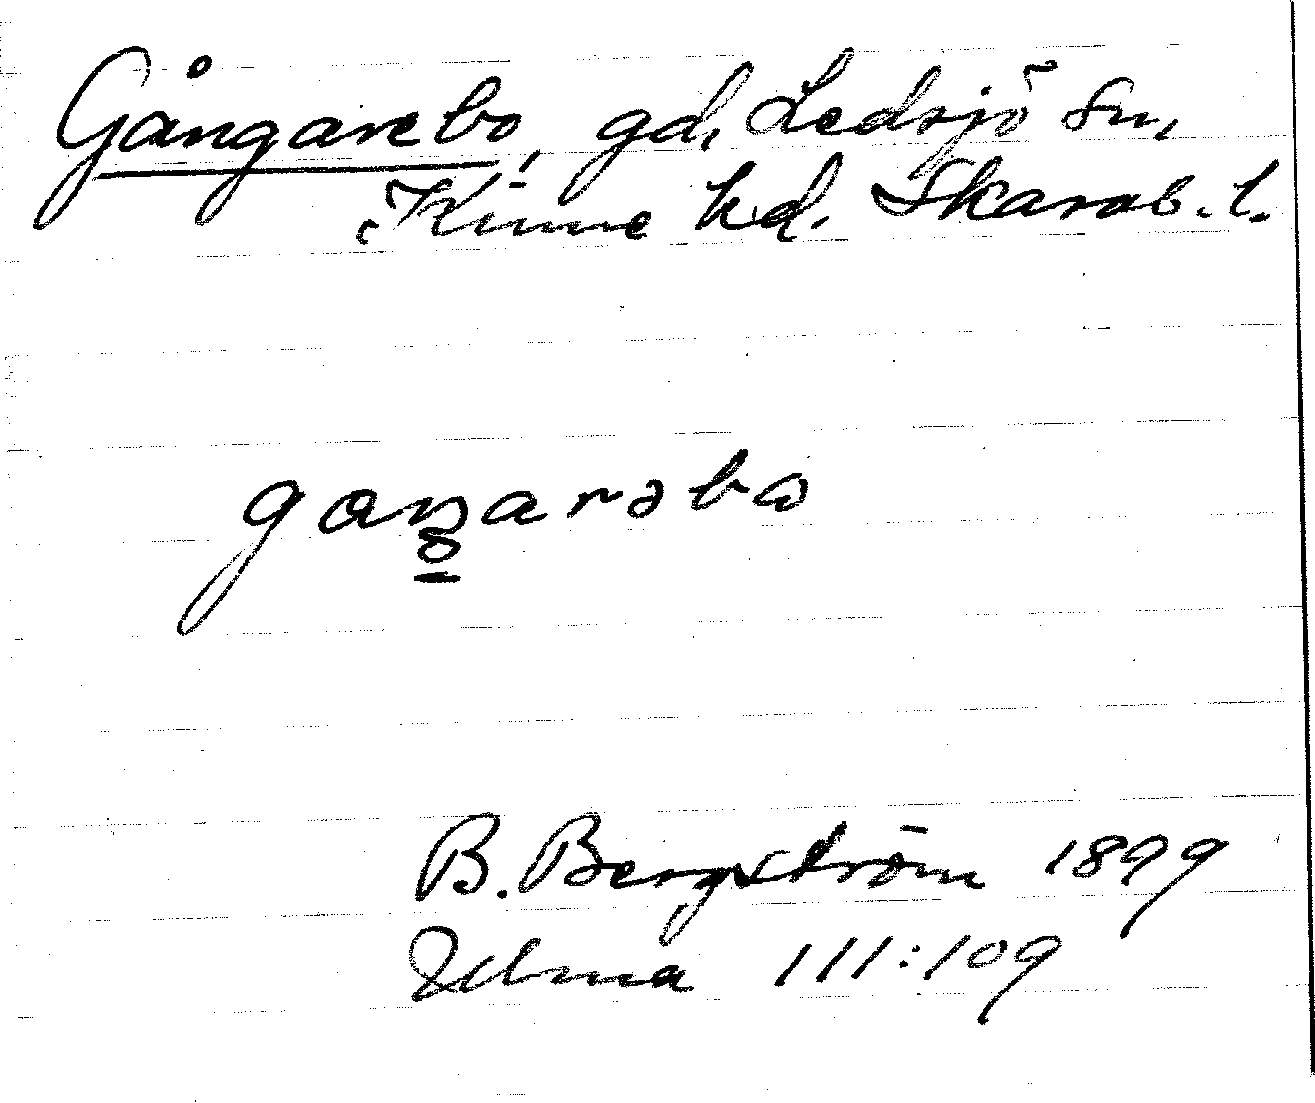 Gångarebo, gd, Ledsjö sn,
Kinne hd. Skarab. l.
gaŋarəbω
B. Bergström 1899
Ulma 111:109